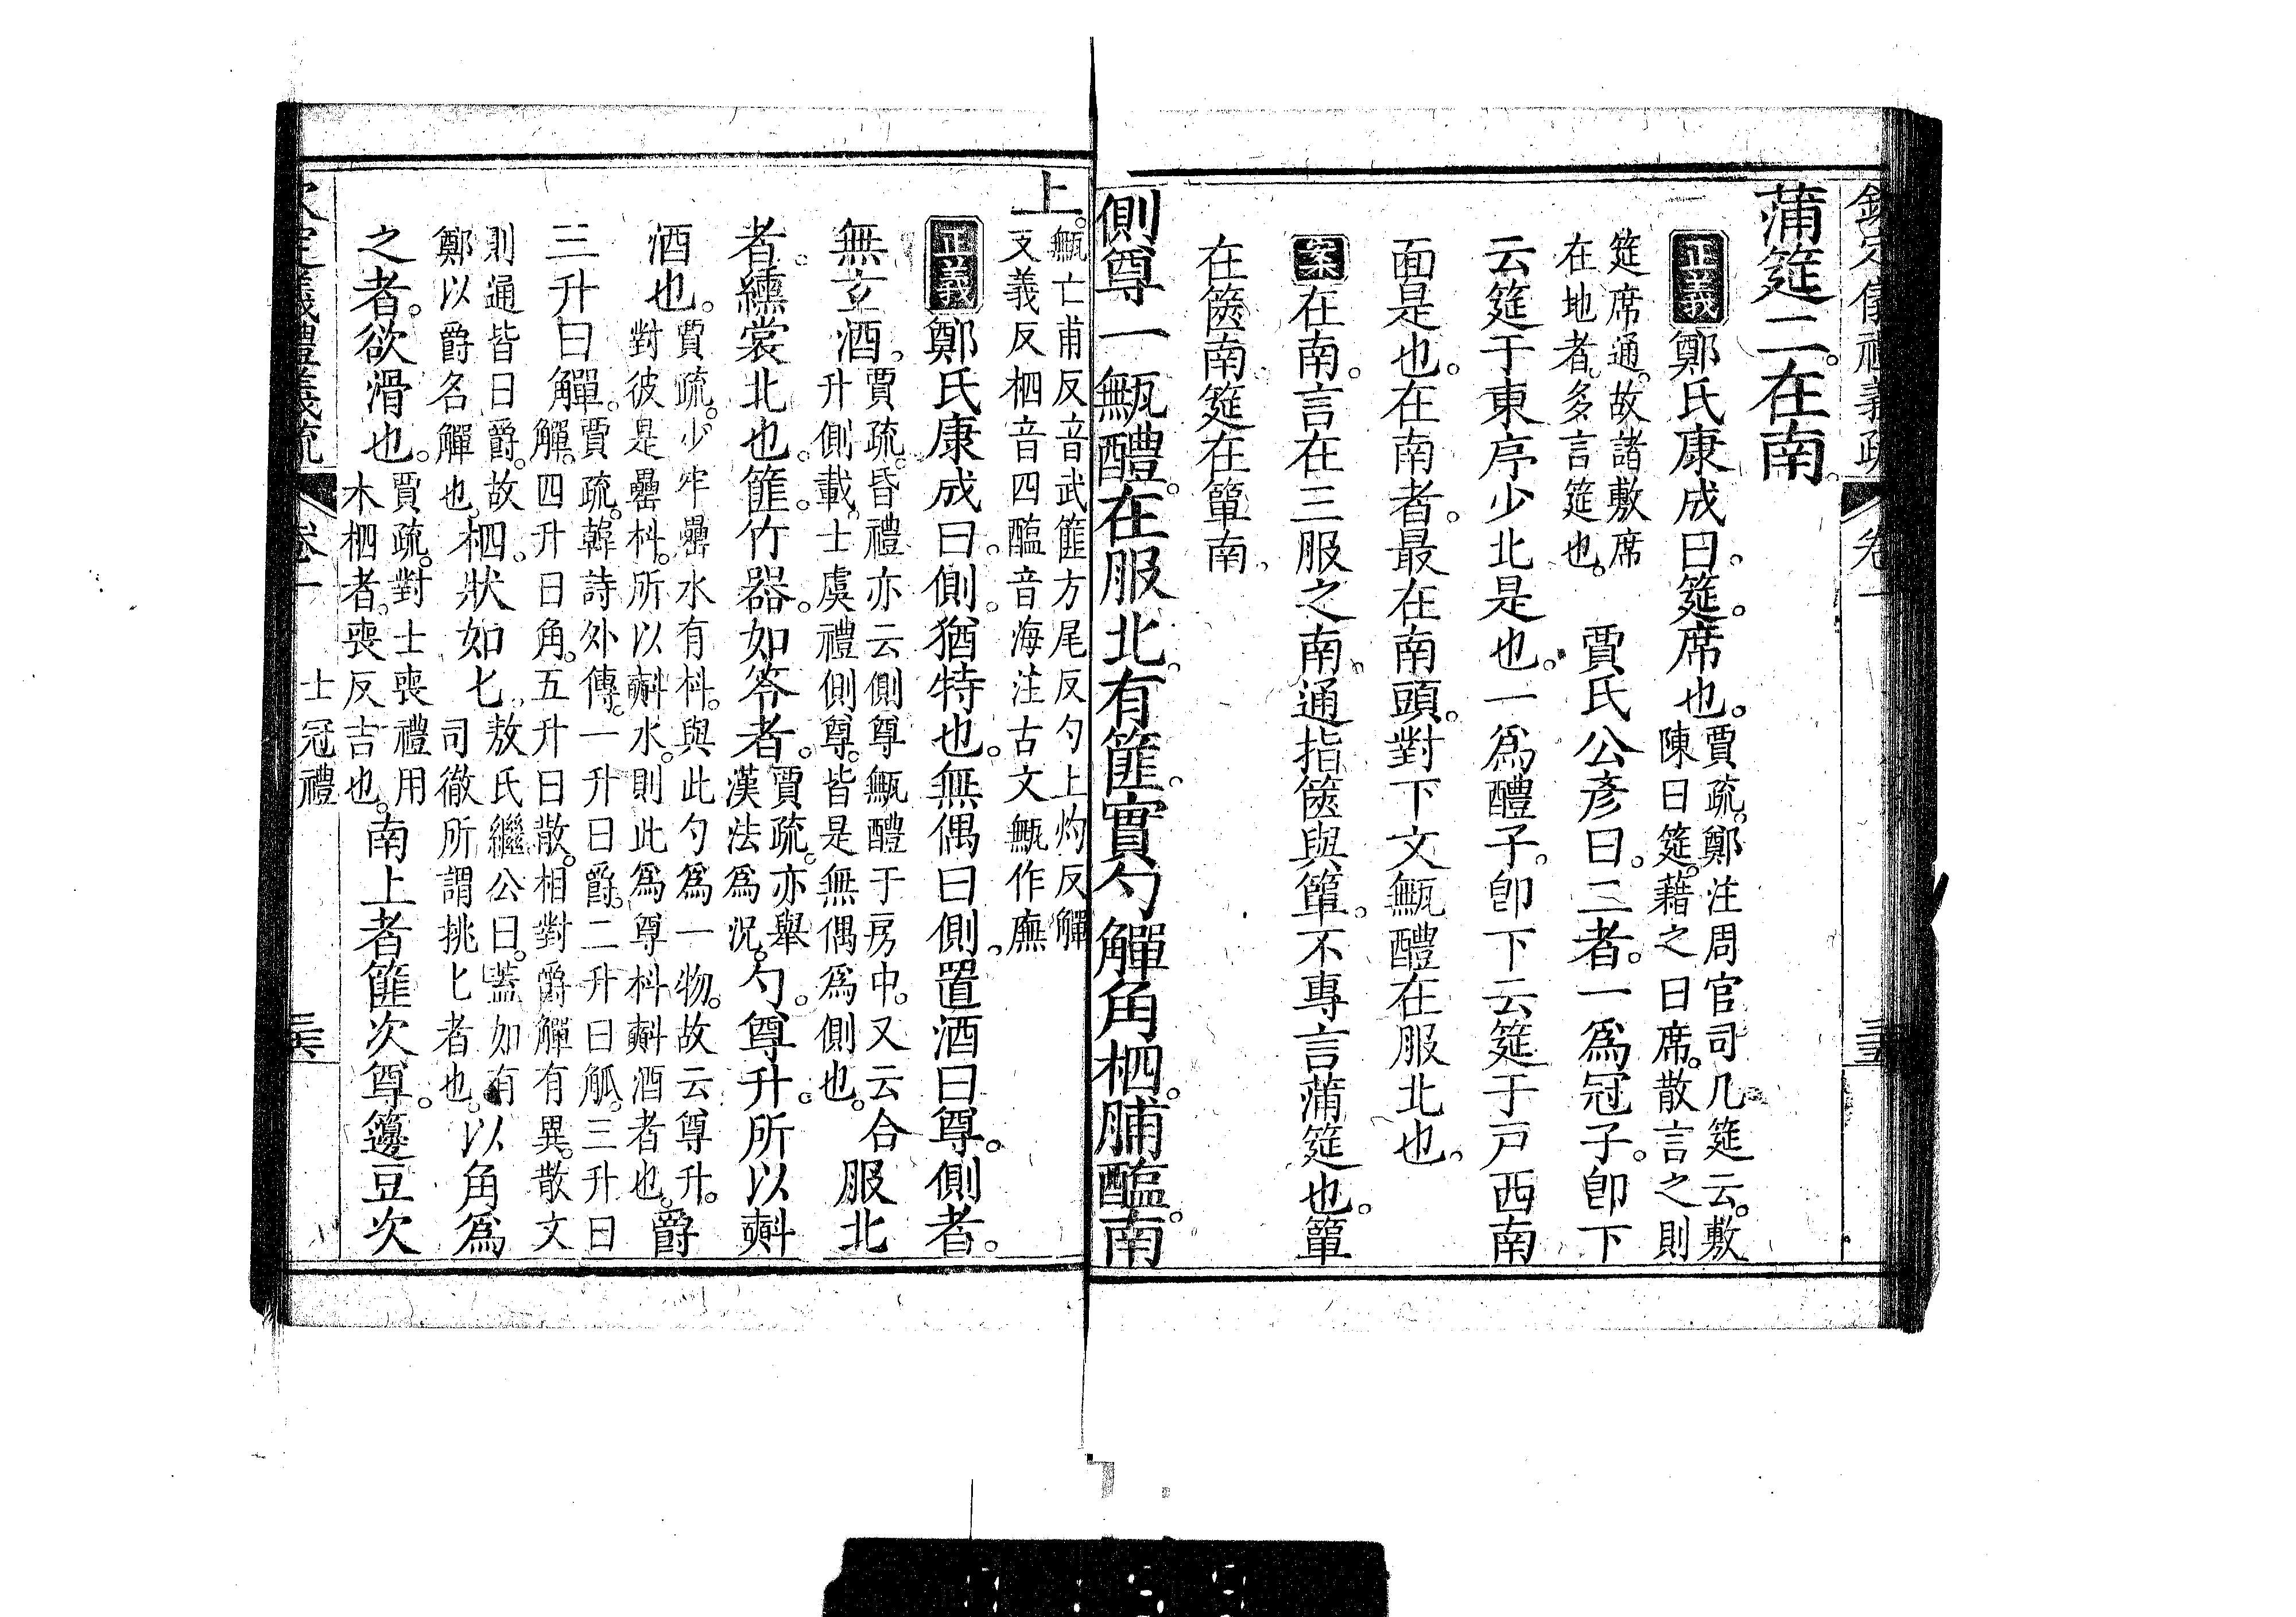 欽定儀禮義疏 卷一 三五
蒲筵二。在南。
正義 鄭氏康成曰。筵。席也。賈疏。鄭注周官司几筵云。敷陳曰筵。藉之曰席。散言之則
筵席通。故諸敷席在地者。多言筵也。 賈氏公彥曰。二者。一爲冠子。卽下
云筵于東序少北是也。一爲醴子。卽下云筵于戸西南
面是也。在南者。最在南頭。對下文甒醴在服北也。
案 在南。言在三服之南。通指篋與簞。不專言蒲筵也。簞
在篋南。筵在簞南。
側尊一甒醴。在服北。有篚。實勺觶角柶。脯醢。南
上。甒亡甫反音武篚方尾反勺上灼反觶支義反柶音四醢音海注古文甒作廡
正義 鄭氏康成曰。側。猶特也。無偶曰側。置酒曰尊。側者。
無玄酒。賈疏。昏禮亦云側尊甒醴于房中。又云合升側載。士虞禮側尊。皆是無偶爲側也。服北
者。纁裳北也。篚。竹器。如笭者。賈疏。亦舉漢法爲況。勺。尊升。所以㪺
酒也。賈疏。少牢罍水有枓。與此勺爲一物。故云尊升。對彼是罍枓。所以㪺水。則此爲尊枓㪺酒者也。爵
三升曰觶。賈疏。韓詩外傳。一升曰爵。二升曰觚。三升曰觶。四升曰角。五升曰散。相對爵觶有異。散文
則通皆曰爵。故鄭以爵名觶也。柶。狀如匕。敖氏繼公曰。葢如有司徹所謂挑匕者也。以角爲
之者。欲滑也。賈疏。對士喪禮用木柶者。喪反吉也。南上者篚次尊。籩豆次
欽定義禮義疏 卷一 士冠禮 三六